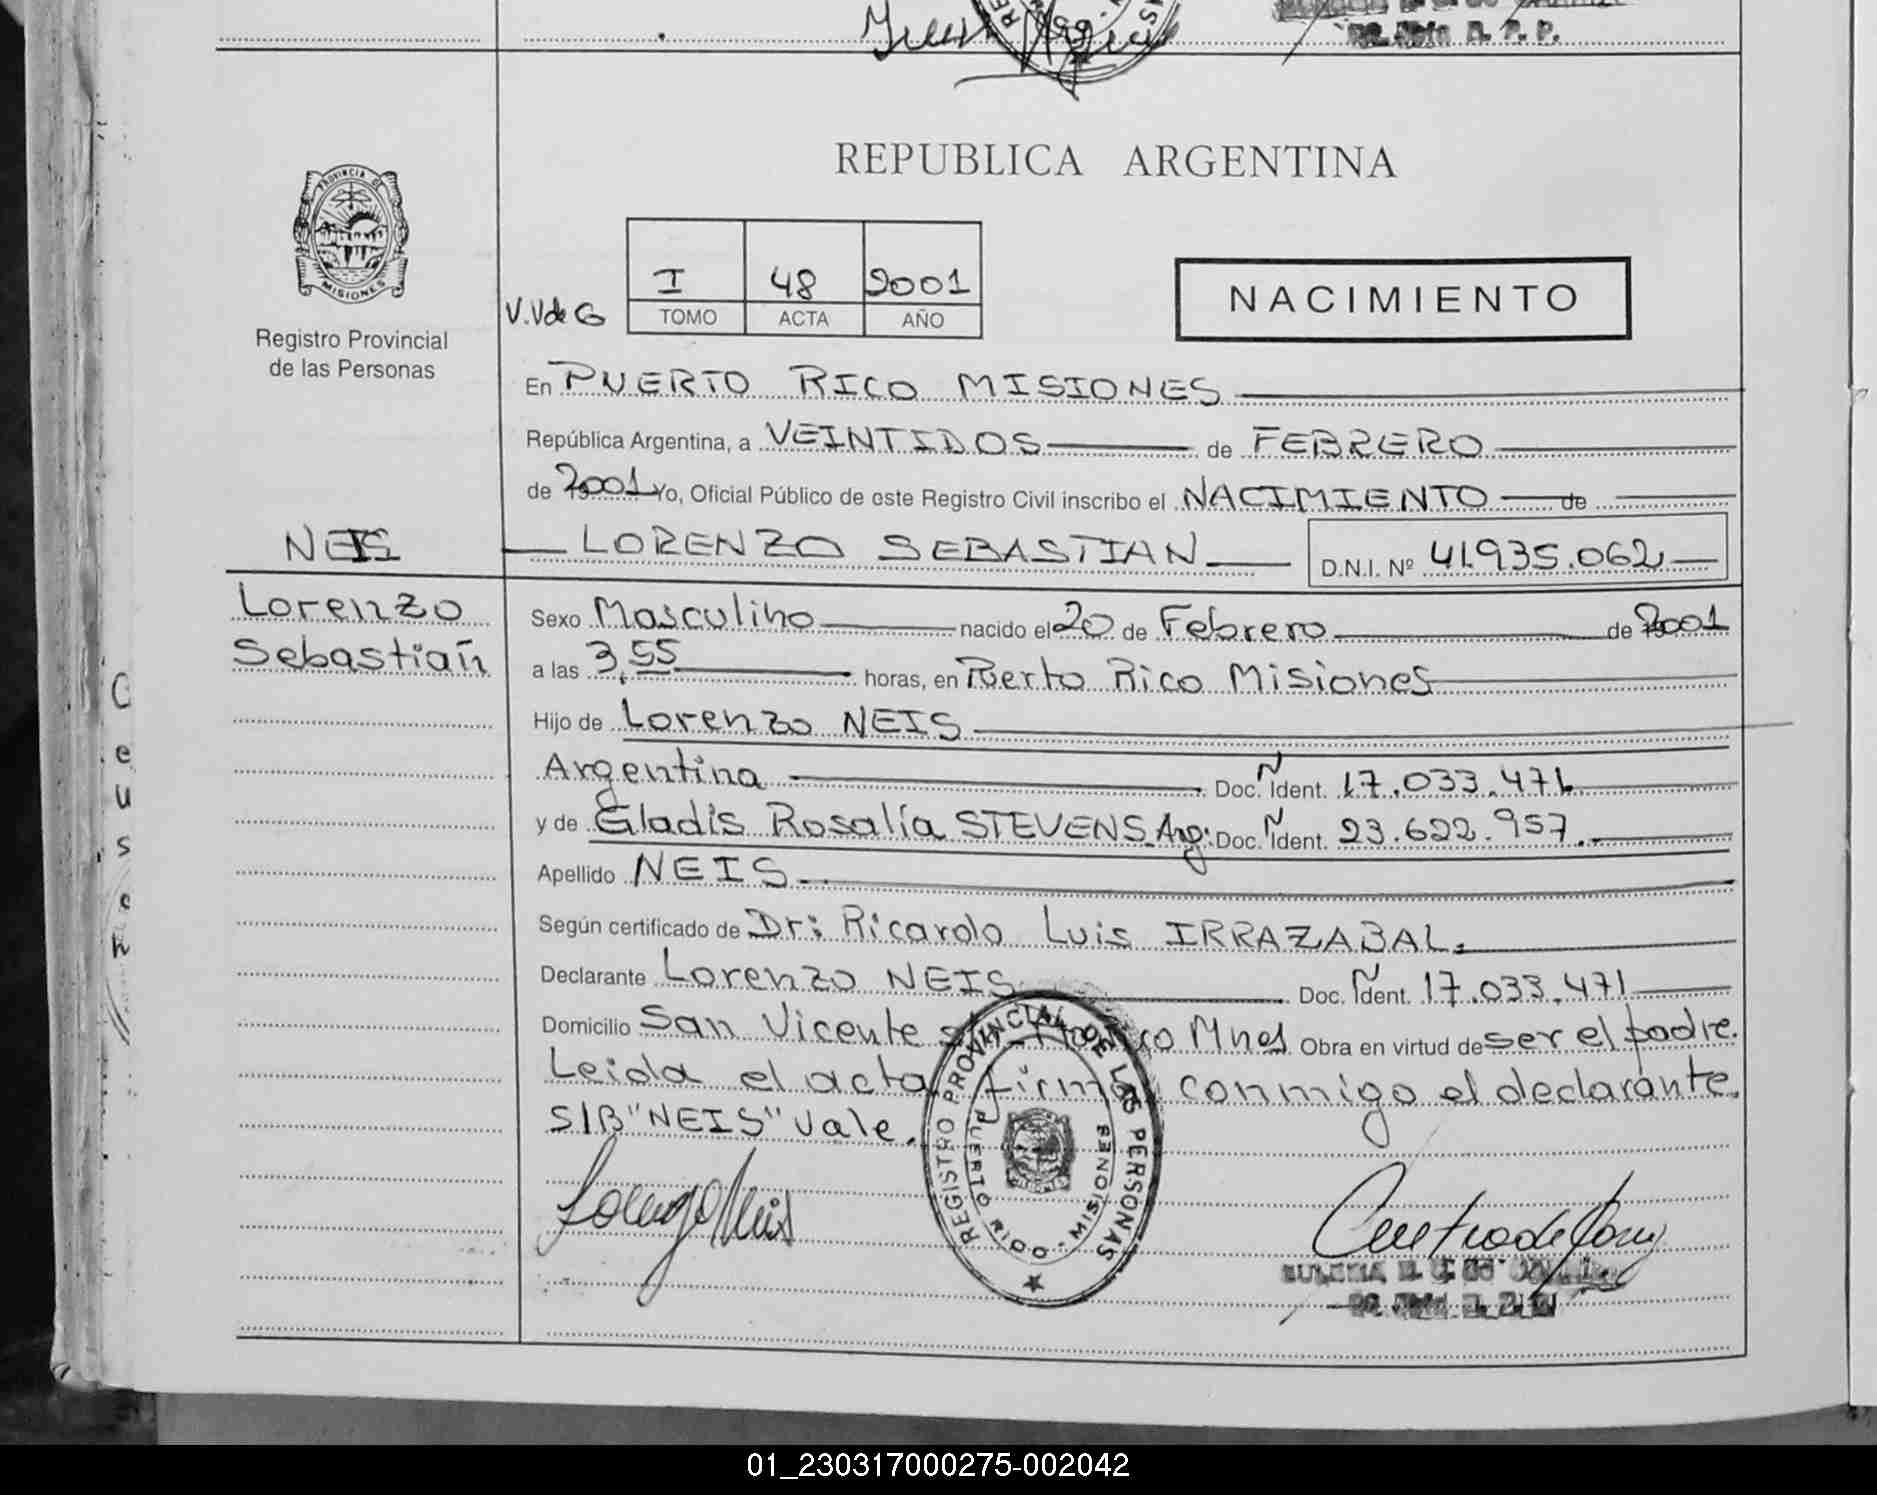 Jc. Jefa R. P. P.
REPUBLICA ARGENTINA
PROVINCIA DE MISIONES
Registro Provincial
de las Personas
V.V de G
I 48 2001
TOMO ACTA AÑO
NACIMIENTO
En PUERTO RICO MISIONES
República Argentina, a VEINTIDOS de FEBRERO
de 2001 Yo, Oficial Público de este Registro Civil inscribo el NACIMIENTO de
NEIS
LORENZO SEBASTIAN D.N.I. Nº 41.935.062
Lorenzo
Sebastian
Sexo Masculino nacido el 20 de Febrero de 2001
a las 3,55 horas, en Puerto Rico Misiones
Hijo de Lorenzo NEIS
Argentina Doc. Ñ Ident. 17.033.471
y de Gladis Rosalía STEVENS Arg: Doc. Ñ Ident. 23.622.957.
Apellido NEIS
Según certificado de Dr: Ricardo Luis IRRAZABAL.
Declarante Lorenzo NEIS Doc. Ñ Ident. 17.033.471
Domicilio San Vicente Mnes Obra en virtud de ser el padre.
Leida el acta firma conmigo el declarante.
S/B "NEIS" Vale.
REGISTRO PROVINCIAL DE LAS PERSONAS
PUERTO RICO - MISIONES
Lorenzo Neis
01_230317000275-002042